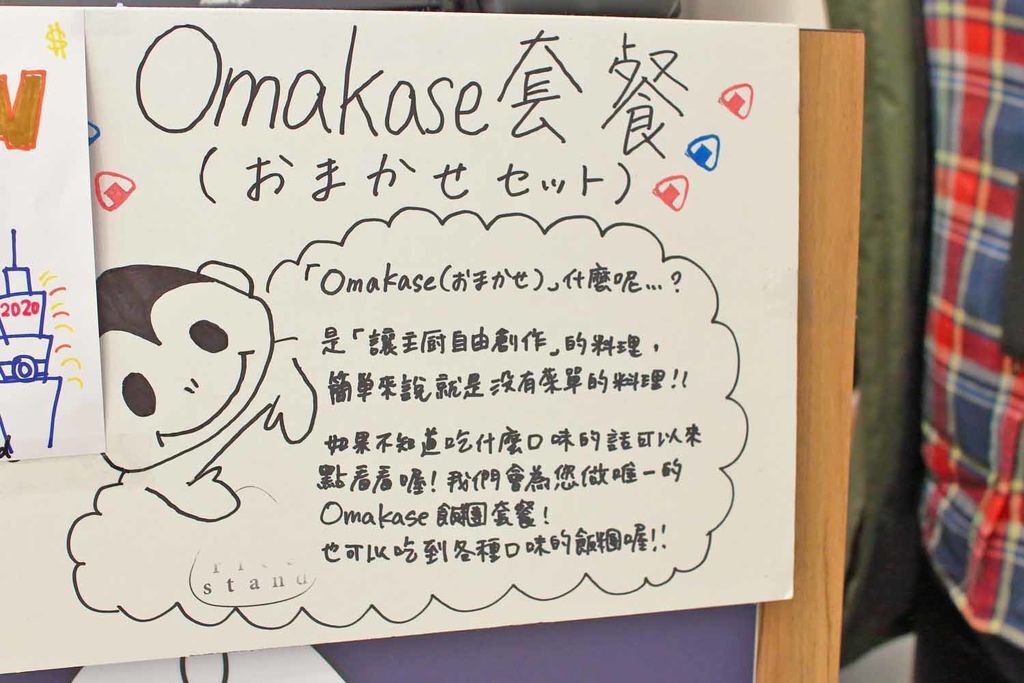 Omakase套餐
(おまかせセット)
「Omakase(おまかせ)」什麼呢...?
是「讓主厨自由創作」的料理，
簡單來說就是沒有菜單的料理!!
如果不知道吃什麼口味的話可以來
點看看喔! 我們會為您做唯一的
Omakase 飯糰套餐!
也可以吃到各種口味的飯糰喔!!
stand
$
2020